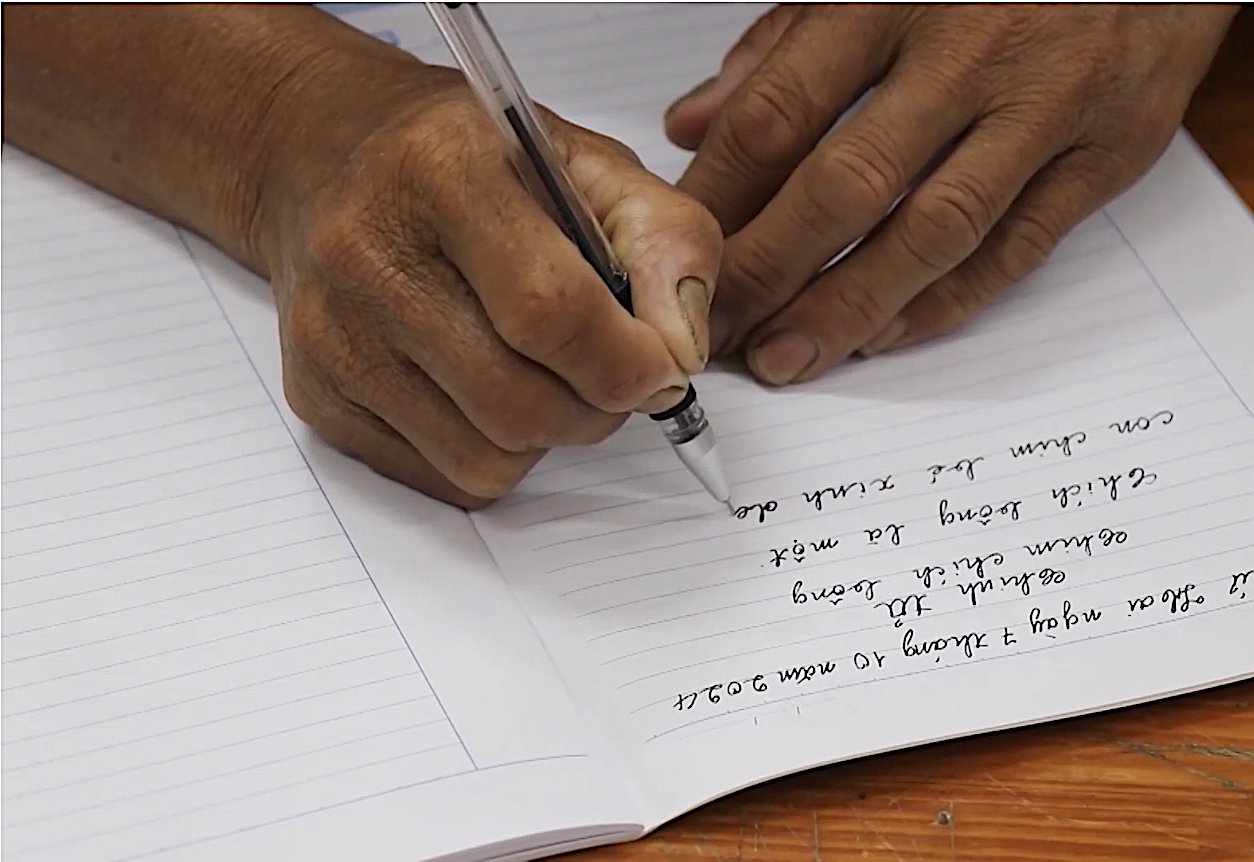 ứ Hai ngày 7 tháng 10 năm 2024
Chính tả
Chim chích bông
Chích bông là một
con chim bé xinh de